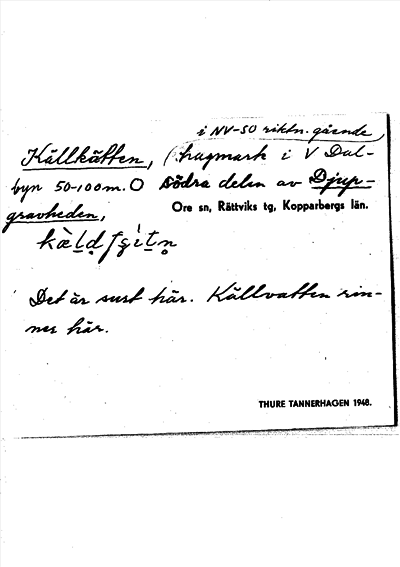 i NV-SO riktn. gående
Källkätten, (hagmark i V Dal-
byn 50-100 m. O södra delen av Djup-
gravheden,
Ore sn, Rättviks tg, Kopparbergs län.
Det är surt här. Källvatten rin-
ner här.
THURE TANNERHAGEN 1948.